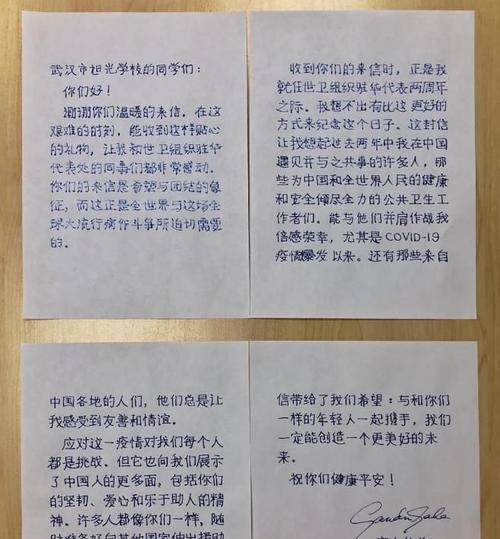 武汉市旭光学校的同学们：
你们好！
谢谢你们温暖的来信。在这
艰难的时刻，能收到这样贴心
的礼物，让我和世卫组织驻华
代表处的同事们都非常感动。
你们的来信是希望与团结的象
征，而这正是全世界与这场全
球大流行病作斗争所迫切需要
的。
收到你们的来信时，正是我
就任世卫组织驻华代表两周年
之际。我想不出有比这更好的
方式来纪念这个日子。这封信
让我想起过去两年中我在中国
遇见并与之共事的许多人，那
些为中国和全世界人民的健康
和安全倾尽全力的公共卫生工
作者们。能与他们并肩作战我
倍感荣幸，尤其是COVID-19
疫情爆发以来。还有那些来自
中国各地的人们，他们总是让
我感受到友善和情谊。
应对这一疫情对我们每个人
都是挑战。但它也向我们展示
了中国人的更多面，包括你们
的坚韧、爱心和乐于助人的精
神。许多人都像你们一样，随
时准备好向其他国家伸出援助
信带给了我们希望：与和你们
一样的年轻人一起携手，我们
一定能创造一个更美好的未
来。
祝你们健康平安！